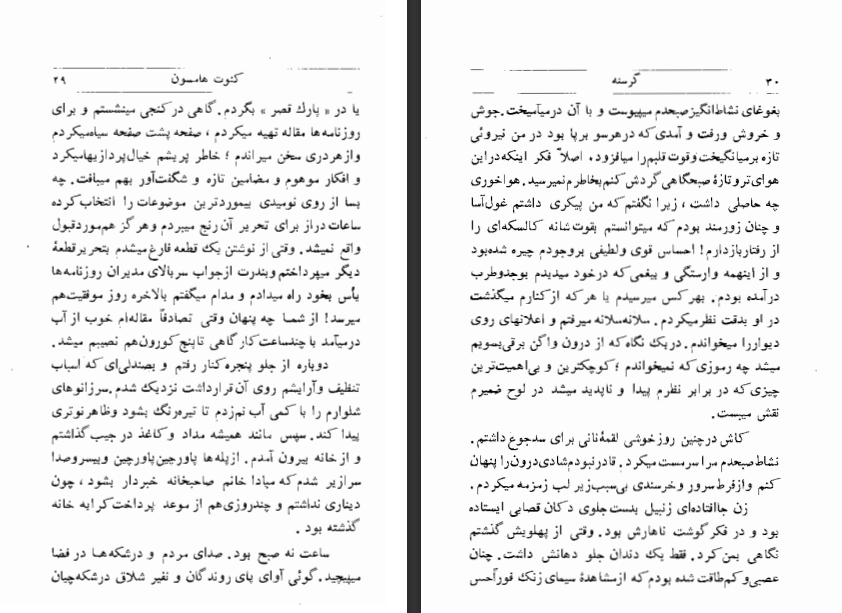 کنوت هامسون ۲۹
یا در « پارك قصر » بگردم. گاهی در کنجی مینشستم و برای
روزنامه‌ها مقاله تهیه میکردم ، صفحه پشت صفحه سیاه میکردم
و از هر دری سخن میراندم ؛ خاطر پریشم خیال پردازیها میکرد
و افکار موهوم و مضامین تازه و شگفت‌آور بهم میبافت. چه
بسا از روی نومیدی بیموردترین موضوعات را انتخاب کرده
ساعات دراز برای تحریر آن رنج میبردم و هرگز هم مورد قبول
واقع نمیشد. وقتی از نوشتن یك قطعه فارغ میشدم بتحریر قطعهٔ
دیگر میپرداختم و بندرت از جواب سربالای مدیران روزنامه‌ها
یأس بخود راه میدادم و مدام میگفتم بالاخره روز موفقیت هم
میرسد! از شما چه پنهان وقتی تصادفاً مقاله‌ام خوب از آب
درمیآمد با چند ساعت کار گاهی تا پنج کورون هم نصیبم میشد.
دوباره از جلو پنجره کنار رفتم و بصندلی‌ای که اسباب
تنظیف و آرایشم روی آن قرار داشت نزدیك شدم. سرزانوهای
شلوارم را با کمی آب نم زدم تا تیره‌رنگ بشود و ظاهر نوتری
پیدا کند. سپس مانند همیشه مداد و کاغذ در جیب گذاشتم
و از خانه بیرون آمدم. از پله‌ها پاورچین پاورچین و بیسروصدا
سرازیر شدم که مبادا خانم صاحبخانه خبردار بشود ، چون
دیناری نداشتم و چند روزی هم از موعد پرداخت کرایه خانه
گذشته بود .
ساعت نه صبح بود. صدای مردم و درشکه‌ها در فضا
میپیچید. گوئی آوای پای روندگان و نفیر شلاق درشکه‌چیان
گرسنه ۳۰
بغوغای نشاط‌انگیز صبحدم میپیوست و با آن درمیآمیخت. جوش
و خروش و رفت و آمدی که در هر سو برپا بود در من نیروئی
تازه برمیانگیخت و قوت قلبم را میافزود. اصلاً فکر اینکه در این
هوای تر و تازهٔ صبحگاهی گردش کنم بخاطرم نمیرسید. هواخوری
چه حاصلی داشت ، زیرا نگفتم که من پیکری داشتم غول‌آسا
و چنان زورمند بودم که میتوانستم بقوت شانه کالسکه‌ای را
از رفتار بازدارم! احساس قوی و لطیفی بر وجودم چیره شده بود
و از اینهمه وارستگی و بیغمی که در خود میدیدم بوجد و طرب
درآمده بودم. بهر کس میرسیدم یا هر که از کنارم میگذشت
در او بدقت نظر میکردم. سلانه سلانه میرفتم و اعلانهای روی
دیوار را میخواندم. در یك نگاه که از درون واگن برقی بسویم
میشد چه رموزی که نمیخواندم ؛ کوچکترین و بی‌اهمیت‌ترین
چیزی که در برابر نظرم پیدا و ناپدید میشد در لوح ضمیرم
نقش میبست.
کاش در چنین روز خوشی لقمهٔ نانی برای سدجوع داشتم.
نشاط صبحدم مرا سرمست میکرد. قادر نبودم شادی درون را پنهان
کنم و از فرط سرور و خرسندی بی‌سبب زیر لب زمزمه میکردم.
زن جاافتاده‌ای زنبیل بدست جلوی دکان قصابی ایستاده
بود و در فکر گوشت ناهارش بود. وقتی از پهلویش گذشتم
نگاهی بمن کرد. فقط یك دندان جلو دهانش داشت. چنان
عصبی و کم طاقت شده بودم که از مشاهدهٔ سیمای زنك فوراً حس